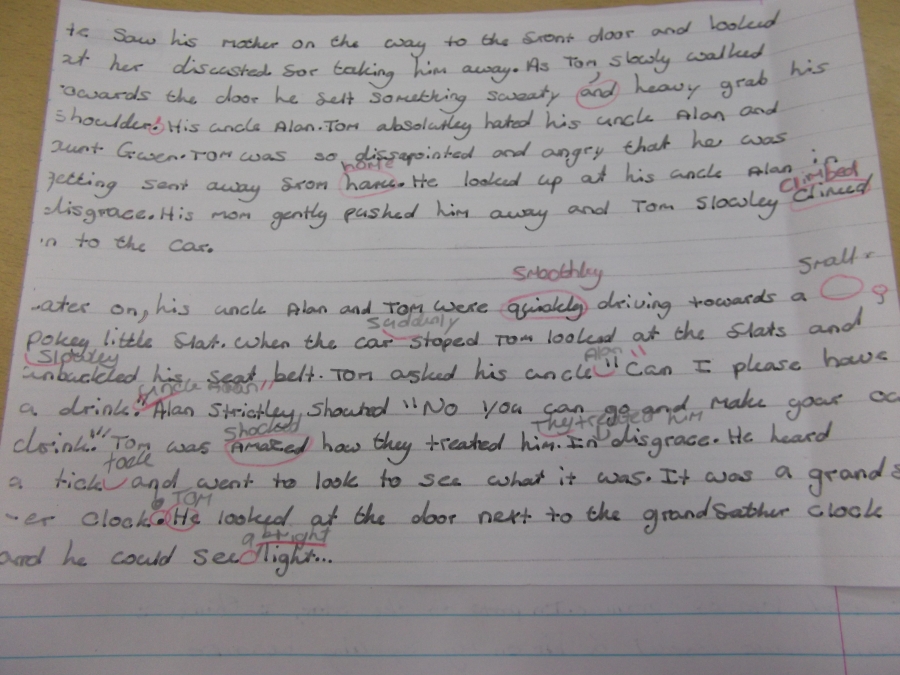 te saw his mother on the way to the front door and looked
at her discusted for taking him away. As Tom, slowly walked
towards the door he felt something sweaty and heavy grab his
shoulder. His uncle Alan. Tom absolutley hated his uncle Alan and
aunt Gwen. Tom was so dissapointed and angry that he was
home
getting sent away from hame. He looked up at his uncle Alan in
climbed
disgrace. His mom gently pushed him away and Tom slowley climed
in to the car.
Smoothley
Small
Later on, his uncle Alan and Tom were quickley driving towards a
Suddenly
pokey little flat. When the car stoped Tom looked at the flats and
Slowley
Alan "
unbuckled his seat belt. Tom asked his uncle "Can I please have
Uncle Alan"
a drink. Alan strictley, shouted "No you can go and make your
Shocked
They treated him
drink." Tom was Amazed how they treated him. In disgrace. He heard
tock
a tick and went to look to see what it was. It was a grandf
Tom
-er clock. He looked at the door next to the grandfather clock
a bright
and he could see light...